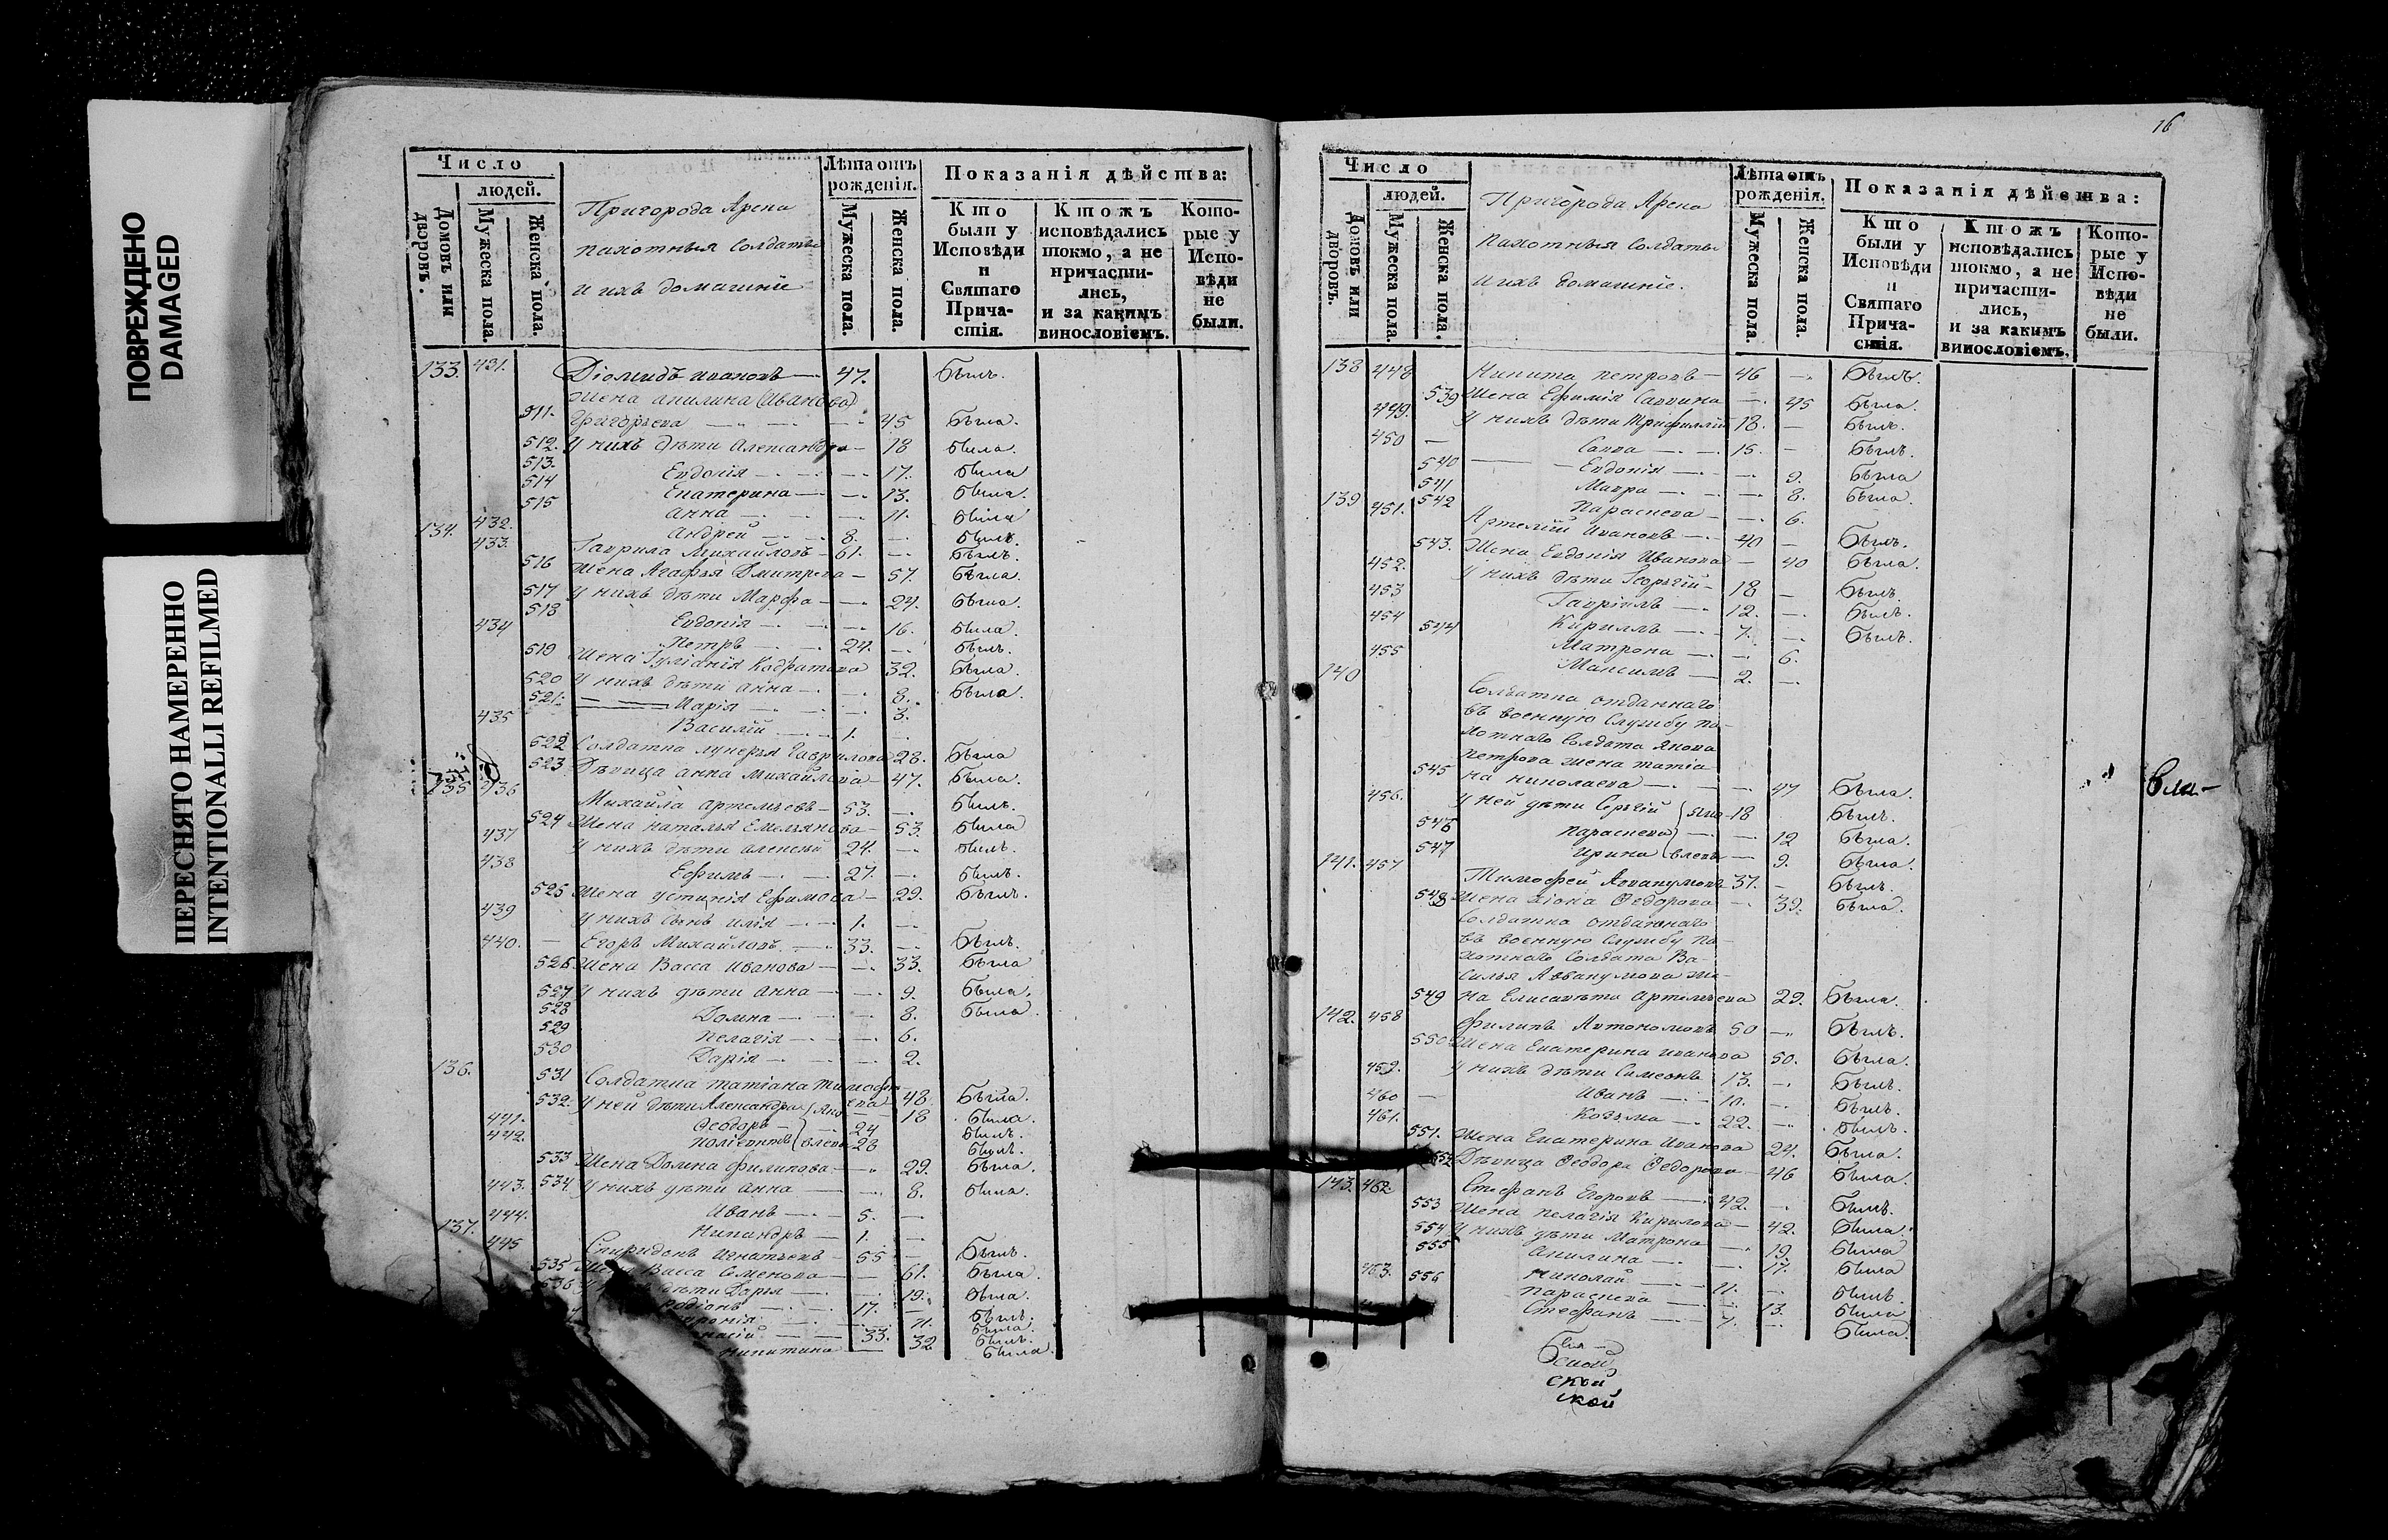 ПОВРЕЖДЕНО
DAMAGED
ПЕРЕСНЯТО НАМЕРЕННО
INTENTIONALLI REFILMED
Число
людей.
Домовъ или дворовъ.
Мужеска пола.
Женска пола.
Пригорода Арска
пахотныя Солдаты
и ихъ домашніе
Лѣта отъ рожденія.
Мужеска пола.
Женска пола.
Показанія дѣйства:
Кто были у Исповѣди и Святаго Прича-стія.
Ктожъ исповѣдались токмо, а не причасти-лись, и за какимъ винословіемъ.
Кото-рые у Испо-вѣди не были.
133. 431. Діомидъ Ивановъ 47. Былъ.
Жена Акилина (Иванова)
511. Григорьева 45 была.
512. У нихъ дѣти Александра 18 была.
513. Евдокія 17. была
514 Екатерина 13. была.
515 Анна 11. была
432. Андрей 8. былъ.
134. 433. Гаврила Михайловъ 61. былъ.
516 Жена Агафья Дмитрева 57. была.
517 У нихъ дѣти Марфа 24. была.
518 Евдокія 16. была.
434 Петръ 24. былъ.
519 Жена Іуліанія Кодратова 32. была.
520 У нихъ дѣти Анна 8. была.
521. Марія 3.
435 Василій 1.
522 Солдатка Лукерья Гаврилова 28. была
523 Дѣвица Анна Михайлова 47. была.
135 436 Михайла Артемьевъ 53. былъ.
524 Жена Наталья Емельянова 53. была
437 У нихъ дѣти Алексѣй 24. былъ.
438 Ефимъ 27. былъ.
525 Жена Устинія Ефимова 29. былъ.
439 У нихъ сынъ Илія 1.
440. Егоръ Михайловъ 33. былъ.
526 Жена Васса Иванова 33. была
527 У нихъ дѣти Анна 9. была.
528 Домна 8. была.
529 Пелагія 6.
530 Дарія 2.
136. 531 Солдатка Татіана Тимофе
ева 48 была.
532. У ней дѣти Александра 18 была.
441. Ѳеодоръ 24 былъ.
442. Поліевктъ 28 былъ.
533 Жена Домна Филипова 29. была.
443. 534 У нихъ дѣти Анна 8. была.
444. Иванъ 5.
Никандръ 1.
137. 445 Спиридонъ Игнатьевъ 55 былъ.
535 Жена Васса Семенова 61. была.
536 дѣти Дарья 19. была.
родіонъ 17. былъ.
11. была.
33. былъ.
никитина 32 была.
16
Число
людей.
Домовъ или дворовъ.
Мужеска пола.
Женска пола.
Пригорода Арска
пахотныя Солдаты
и ихъ домашніе.
Лѣта отъ рожденія.
Мужеска пола.
Женска пола.
Показанія дѣйства:
Кто были у Исповѣди и Святаго Прича-стія.
Ктожъ исповѣдались токмо, а не причасти-лись, и за какимъ винословіемъ.
Кото-рые у Испо-вѣди не были.
138 448 Никита Петровъ 46 былъ.
539 Жена Ефимія Саввина 45 была.
449. У нихъ дѣти Трифиллій 18. былъ.
450 Савва 15. былъ.
540 Евдокія 9. была
541 Мавра 8. была.
542 Параскева 6.
139 451. Артемій Ивановъ 40 былъ.
543. Жена Евдокія Иванова 40 была.
452. У нихъ дѣти Георгій 18 былъ.
453 Гавріилъ 12. былъ.
454 Кириллъ 7. былъ.
544 Матрона 6.
455 Максимъ 2.
140 Солдатка отданнаго
въ военную службу па-
хотнаго Солдата Якова
Петрова жена Татіа
545 на Николаева 47 была.
456. У ней дѣти Сергій 18 былъ.
546 Параскева 12 была.
547 Ирина 9. была.
141. 457 Тимофей Аввакумовъ 37. былъ.
548 Жена Хіона Ѳедорова 39. была.
Солдатка отданнаго
въ военную службу па-
хотнаго Солдата Ва-
силья Аввакумова же-
549 на Елисавета Артемьева 29. была.
142. 458 Филипъ Автономовъ 50 былъ.
550 Жена Екатерина Иванова 50. была.
459. У нихъ дѣти Симеонъ 13. былъ.
460 Иванъ 10. былъ.
461. Козьма 22. былъ.
551. Жена Екатерина Иванова 24. была.
552 Дѣвица Ѳеодора Ѳедорова 46 была.
143. 462. Стефанъ Егоровъ 42. былъ.
553 Жена Пелагія Кирилова 42. была.
554 У нихъ дѣти Матрона 19. была
555 Акилина 17. была
463. Николай 11. былъ.
556 Параскева 13. была
Стефанъ 7. была.
ской
ской